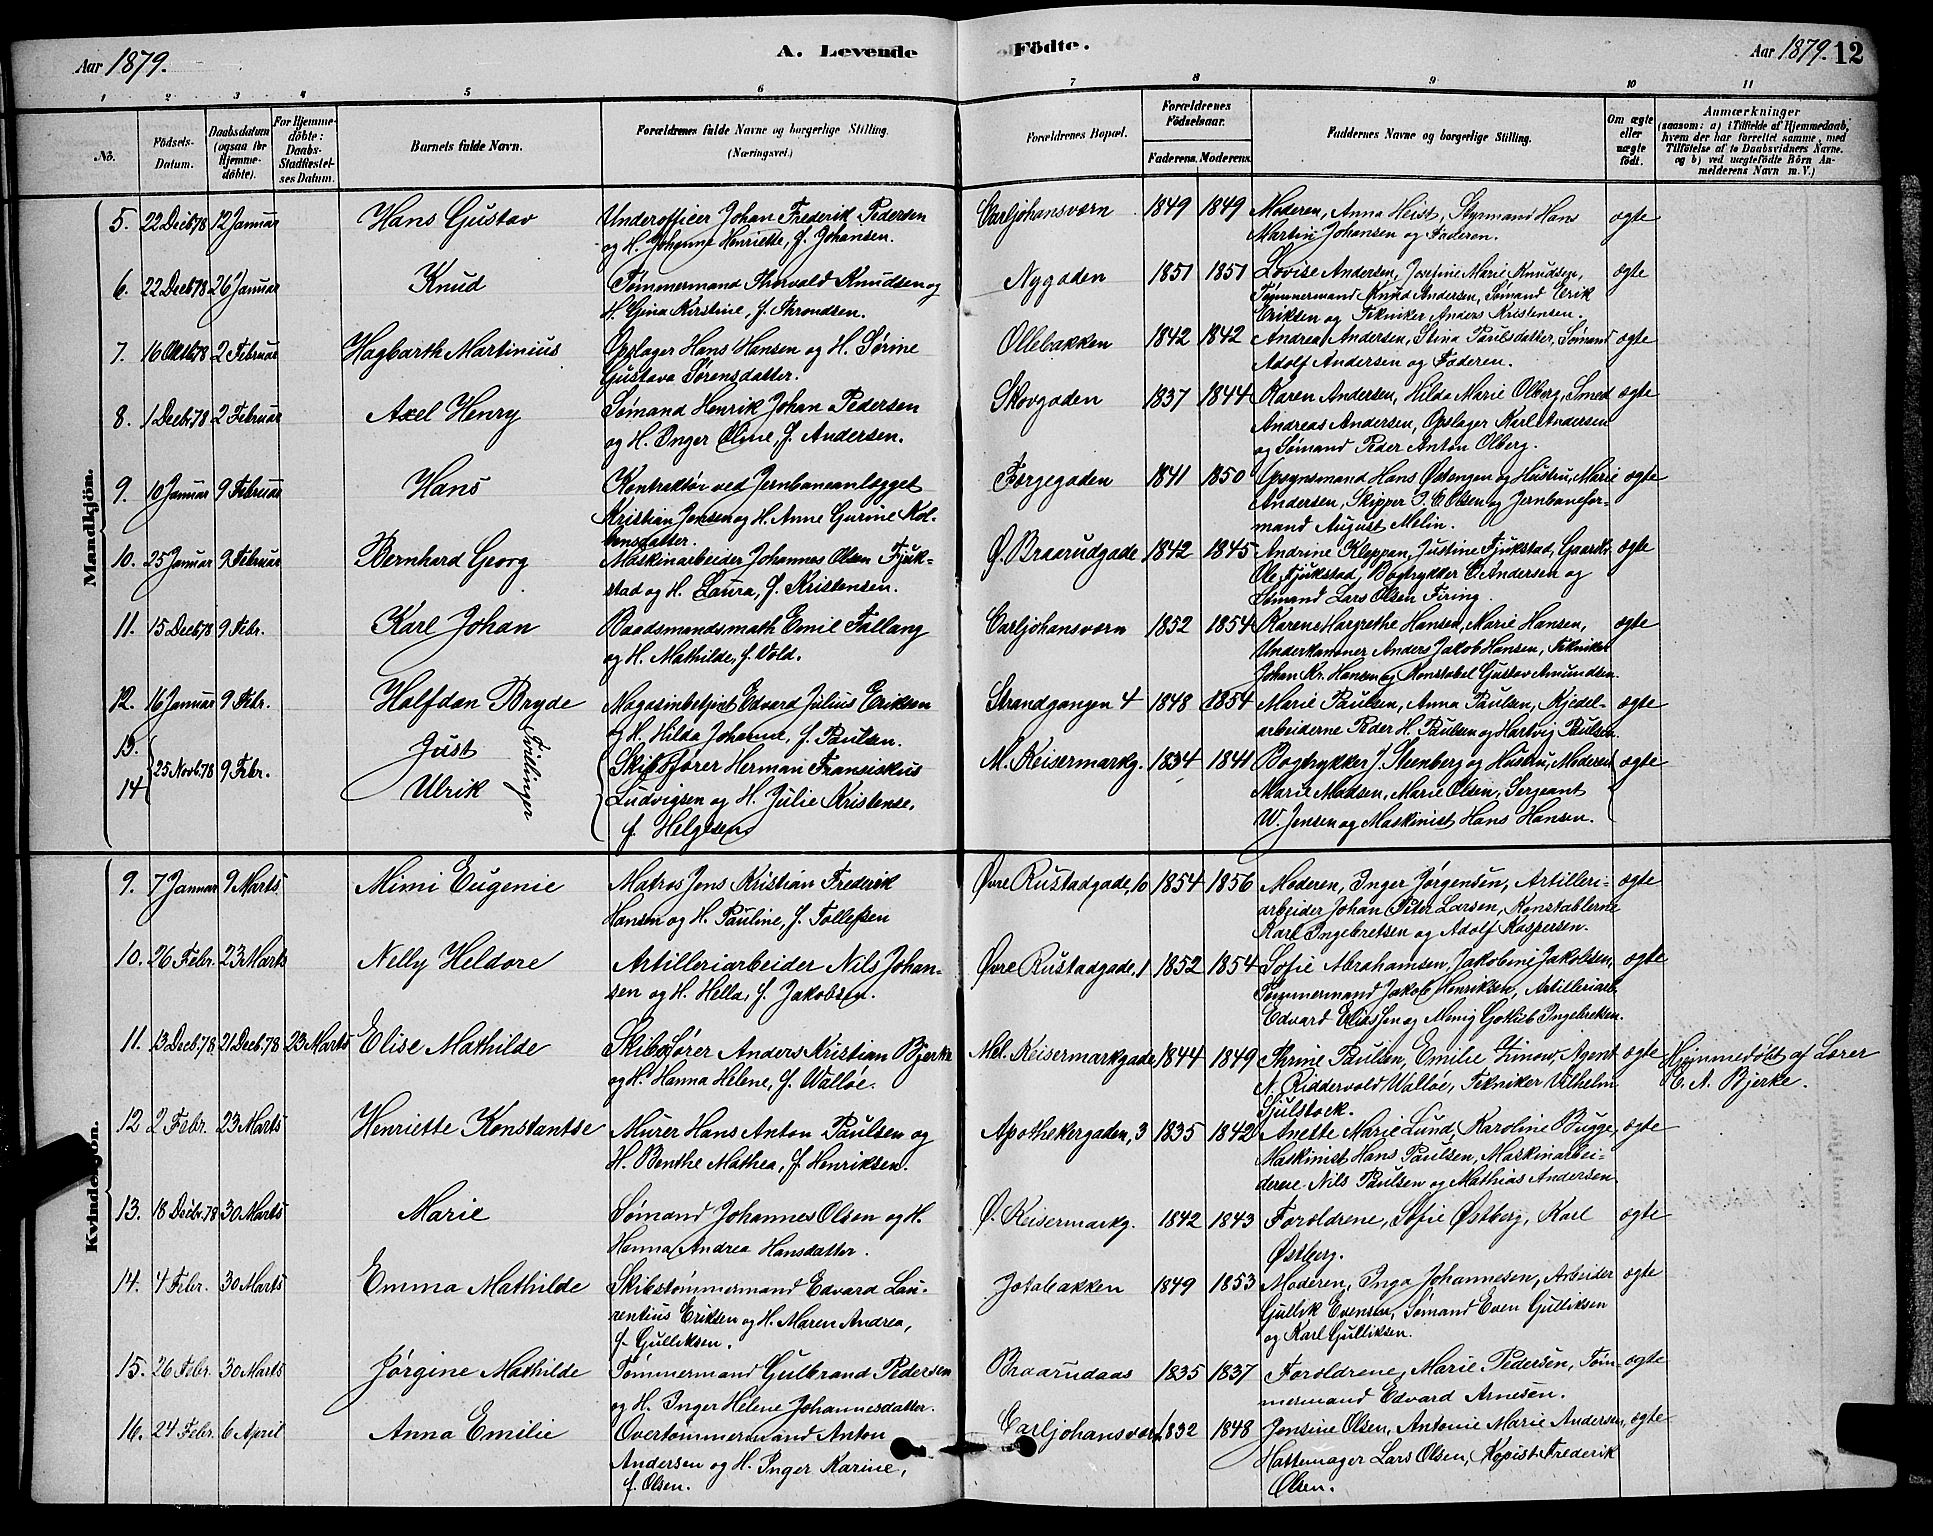 Aar 1879.
A. Levende Födte.
Aar 1879. 12
1 2 3 4 5 6 7 8 9 10 11
No.
Födsels-Datum.
Daabsdatum (ogsaa for Hjemmedöbte).
For Hjemmedöbte: Daabs-Stadfæstelses Datum.
Barnets fulde Navn.
Forældrenes fulde Navne og borgerlige Stilling. (Næringsvei.)
Forældrenes Bopæl.
Forældrenes Födselsaar.
Faderens. Moderens.
Faddernes Navne og borgerlige Stilling.
Om ægte eller uægte födt.
Anmærkninger (saasom: a) i Tilfælde af Hjemmedaab, hvem der har forrettet samme, med Tilföielse af to Daabsvidners Navne. og b) ved uægtefödte Börn Anmelderens Navn m. V.)
Mandkjön.
5. 22 Decb. 78 12 Januar Hans Gustav
Underofficer Johan Frederik Pedersen
og H. Johanne Henriette, f. Johansen.
Carljohansværn 1849 1849
Moderen, Anna Heist, Styrmand Hans
Martin Johansen og Faderen.
ægte
6. 22 Decb 78 26 Januar Knud
Tømmermand Thorvald Knudsen og
H. Gina Kirstine, f. Throndsen.
Nygaden 1851 1851
Lovise Andersen, Josefine Marie Knudsen,
Tømmermand Knud Andersen, Sømand Erik
Eriksen og Tekniker Anders Kristensen.
ægte
7. 16 Oktb 78 2 Februar Hagbarth Martinius
Opslager Hans Hansen og H. Sørine
Gustava Sørensdatter.
Ollebakken 1842 1842
Andrea Andersen, Stina Paulsdatter, Sømand
Adolf Andersen og Faderen.
ægte
8. 1 Decb. 78 2 Februar Axel Henry
Sømand Henrik Johan Pedersen
og H. Inger Oline, f. Andersen.
Skovgaden 1837 1844
Karen Andersen, Hilda Marie Olberg, Smed
Andreas Andersen, Opslager Karl Andersen
og Sømand Peder Anton Olberg.
ægte
9. 10 Januar 9 Februar Hans
Kontraktør ved Jernbaneanlægget
Kristian Jensen og H. Anne Gurine Kol-
bensdatter.
Færgegaden 1841 1850
Opsynsmand Hans Østengen og Hustru, Marie
Andersen, Skipper I. C. Olsen og Jernbanefor-
mand August Melin.
ægte
10. 25 Januar 9 Februar Bernhard Georg
Maskinarbeider Johannes Olsen Fjuk-
stad og H. Laura, f. Kristensen.
Ø. Braarudgade 1842 1845
Andrine Kleppan, Justine Fjukstad, Gaardb.
Ole Fjukstad, Bogtrykker C. Andersen og
Sømand Lars Olsen Firing.
ægte
11. 15 Decb 78 9 Febr. Karl Johan
Baadsmandsmath Emil Fallang
og H. Mathilde, f. Vold.
Carljohansværn 1852 1854
Karen Margrethe Hansen, Marie Hansen,
Underkanoner Anders Jakob Hansen, Tekniker
Johan Kr. Hansen og Konstabel Gustav Amundsen.
ægte
12. 16 Januar 9 Febr. Halfdan Bryde
Magasinbetjent Edvard Julius Eriksen
og H. Hilda Johanne, f. Paulsen.
Strandgangen 4 1848 1854
Marie Paulsen, Anna Paulsen, Kjedel-
arbeiderne Peder H. Paulsen og Hartvig Paulsen.
ægte
13. 14 25 Novb. 78 9 Febr. Just Ulrik Tvillinger
Skibsfører Herman Fransiskus
Ludvigsen og H. Julie Kristense,
f. Helgesen
M. Keisermarkg. 1834 1841
Bogtrykker J. Steenberg og Hustru, Moderen
Marie Madsen, Marie Olsen, Sergeant
W. Jensen og Maskinist Hans Hansen.
ægte
Kvindekjön.
9. 7 Januar 9 Marts Mimi Eugenie
Matros Jens Kristian Frederik
Hansen og H. Pauline, f. Tollefsen
Øvre Rustadgade, 10 1854 1856
Moderen, Inger Jørgensen, Artilleri-
arbeider Johan Peter Larsen, Konstablerne
Karl Ingebretsen og Adolf Kaspersen.
ægte
10. 26 Febr. 23 Marts Nelly Heldore
Artilleriarbeider Nils Johan-
sen og H. Hella, f. Jakobsen.
Øvre Rustadgade, 1 1852 1854
Sofie Abrahamsen, Jakobine Jakobsen,
Tømmermand Jakob Henriksen, Artilleriarb.
Edvard Eliassen og Menig Gotlieb Ingebretsen.
ægte
11. 13 Decb. 78 21 Decb. 78 23 Marts Elise Mathilde
Skibsfører Anders Kristian Bjerke
og H. Hanna Helene, f. Walløe.
Mel. Keisermarkgade 1844 1849
Thrine Paulsen, Emilie Zinow, Agent
N. Riddervold Walløe, Tekniker Vilhelm
Gjulstock.
ægte
Hjemmedøbt af Lærer
C. A. Bjerke.
12 2 Febr. 23 Marts Henriette Konstantse
Murer Hans Anton Paulsen og
H. Benthe Mathea, f. Henriksen.
Apothekergaden, 3 1835 1842
Anette Marie Lund, Karoline Bugge,
Maskinist Hans Paulsen, Maskinarbei-
derne Nils Paulsen og Mathias Andersen
ægte
13. 18 Decbr. 78 30 Marts Marie
Sømand Johannes Olsen og H.
Hanna Andrea Hansdatter.
Ø. Keisermarkg. 1842 1843
Forældrene, Sofie Østberg, Karl
Østberg.
ægte
14. 4 Febr. 30 Marts Emma Mathilde
Skibstømmermand Edvard Lau-
rentius Eriksen og H. Maren Andrea,
f. Gulliksen.
Jotabakken 1849 1853
Moderen, Inga Johannesen, Arbeider
Gullik Evensen, Sømand Even Gulliksen
og Karl Gulliksen.
ægte
15. 26 Febr. 30 Marts Jørgine Mathilde
Tømmermand Gulbrand Pedersen
og H. Inger Helene Johannesdatter.
Braarudaas 1835 1837
Forældrene, Marie Pedersen, Tøm-
mermand Edvard Arnesen.
ægte
16. 24 Febr. 6 April Anna Emilie
Overtømmermand Anton
Andersen og H. Inger Karine,
f. Olsen.
Carljohansværn 1832 1848
Jensine Olsen, Antonie Marie Andersen,
Hattemager Lars Olsen, Kopist Frederik
Olsen.
ægte